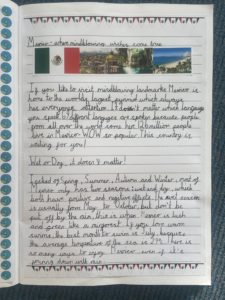 Mexico - where mindblowing wishes come true
If you like to visit mindblowing landmarks Mexico is
home to the worlds largest pyramid which always
has everyones attention. It doesn't matter which language
you speak different languages are spoken because people
from all over the world come here. 126 million people
live in Mexico - WOW so popular. This country is
waiting for you!
Wet or Dry, it doesn't matter!
Instead of Spring, Summer, Autumn and Winter, most of
Mexico only has two seasons: wet and dry, which
both have positive and negative effects. The wet season
is usually from May to October, but don't be
put off by the rain, this is when Mexico is lush
and green like a
warm, the best month to come is July, because
the average temperature of the sea is
so many ways to enjoy Mexico even if it's